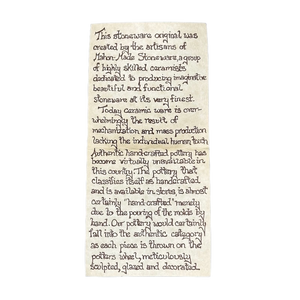 This stoneware original was
created by the artisans of
Mahon-Made Stoneware, a group
of highly skilled ceramists
dedicated to producing imaginative
beautiful and functional
stoneware at its very finest.
Today ceramic ware is over-
whelmingly the result of
mechanization and mass production
lacking the individual human touch.
Authentic hand-crafted pottery has
become virtually unavailable in
this country. The pottery that
classifies itself as handcrafted
and is available in stores, is almost
certainly "hand crafted" merely
due to the pouring of the molds by
hand. Our pottery would certainly
fall into the authentic category
as each piece is thrown on the
potters wheel, meticulously
sculpted, glazed and decorated.